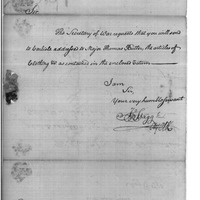 Sir
The Secretary of War requests that you will send
to Carlisle addressed to Major Thomas Butler, the articles of
Clothing &c as contained in the enclosed Return
I am
Sir,
Your very humble servant